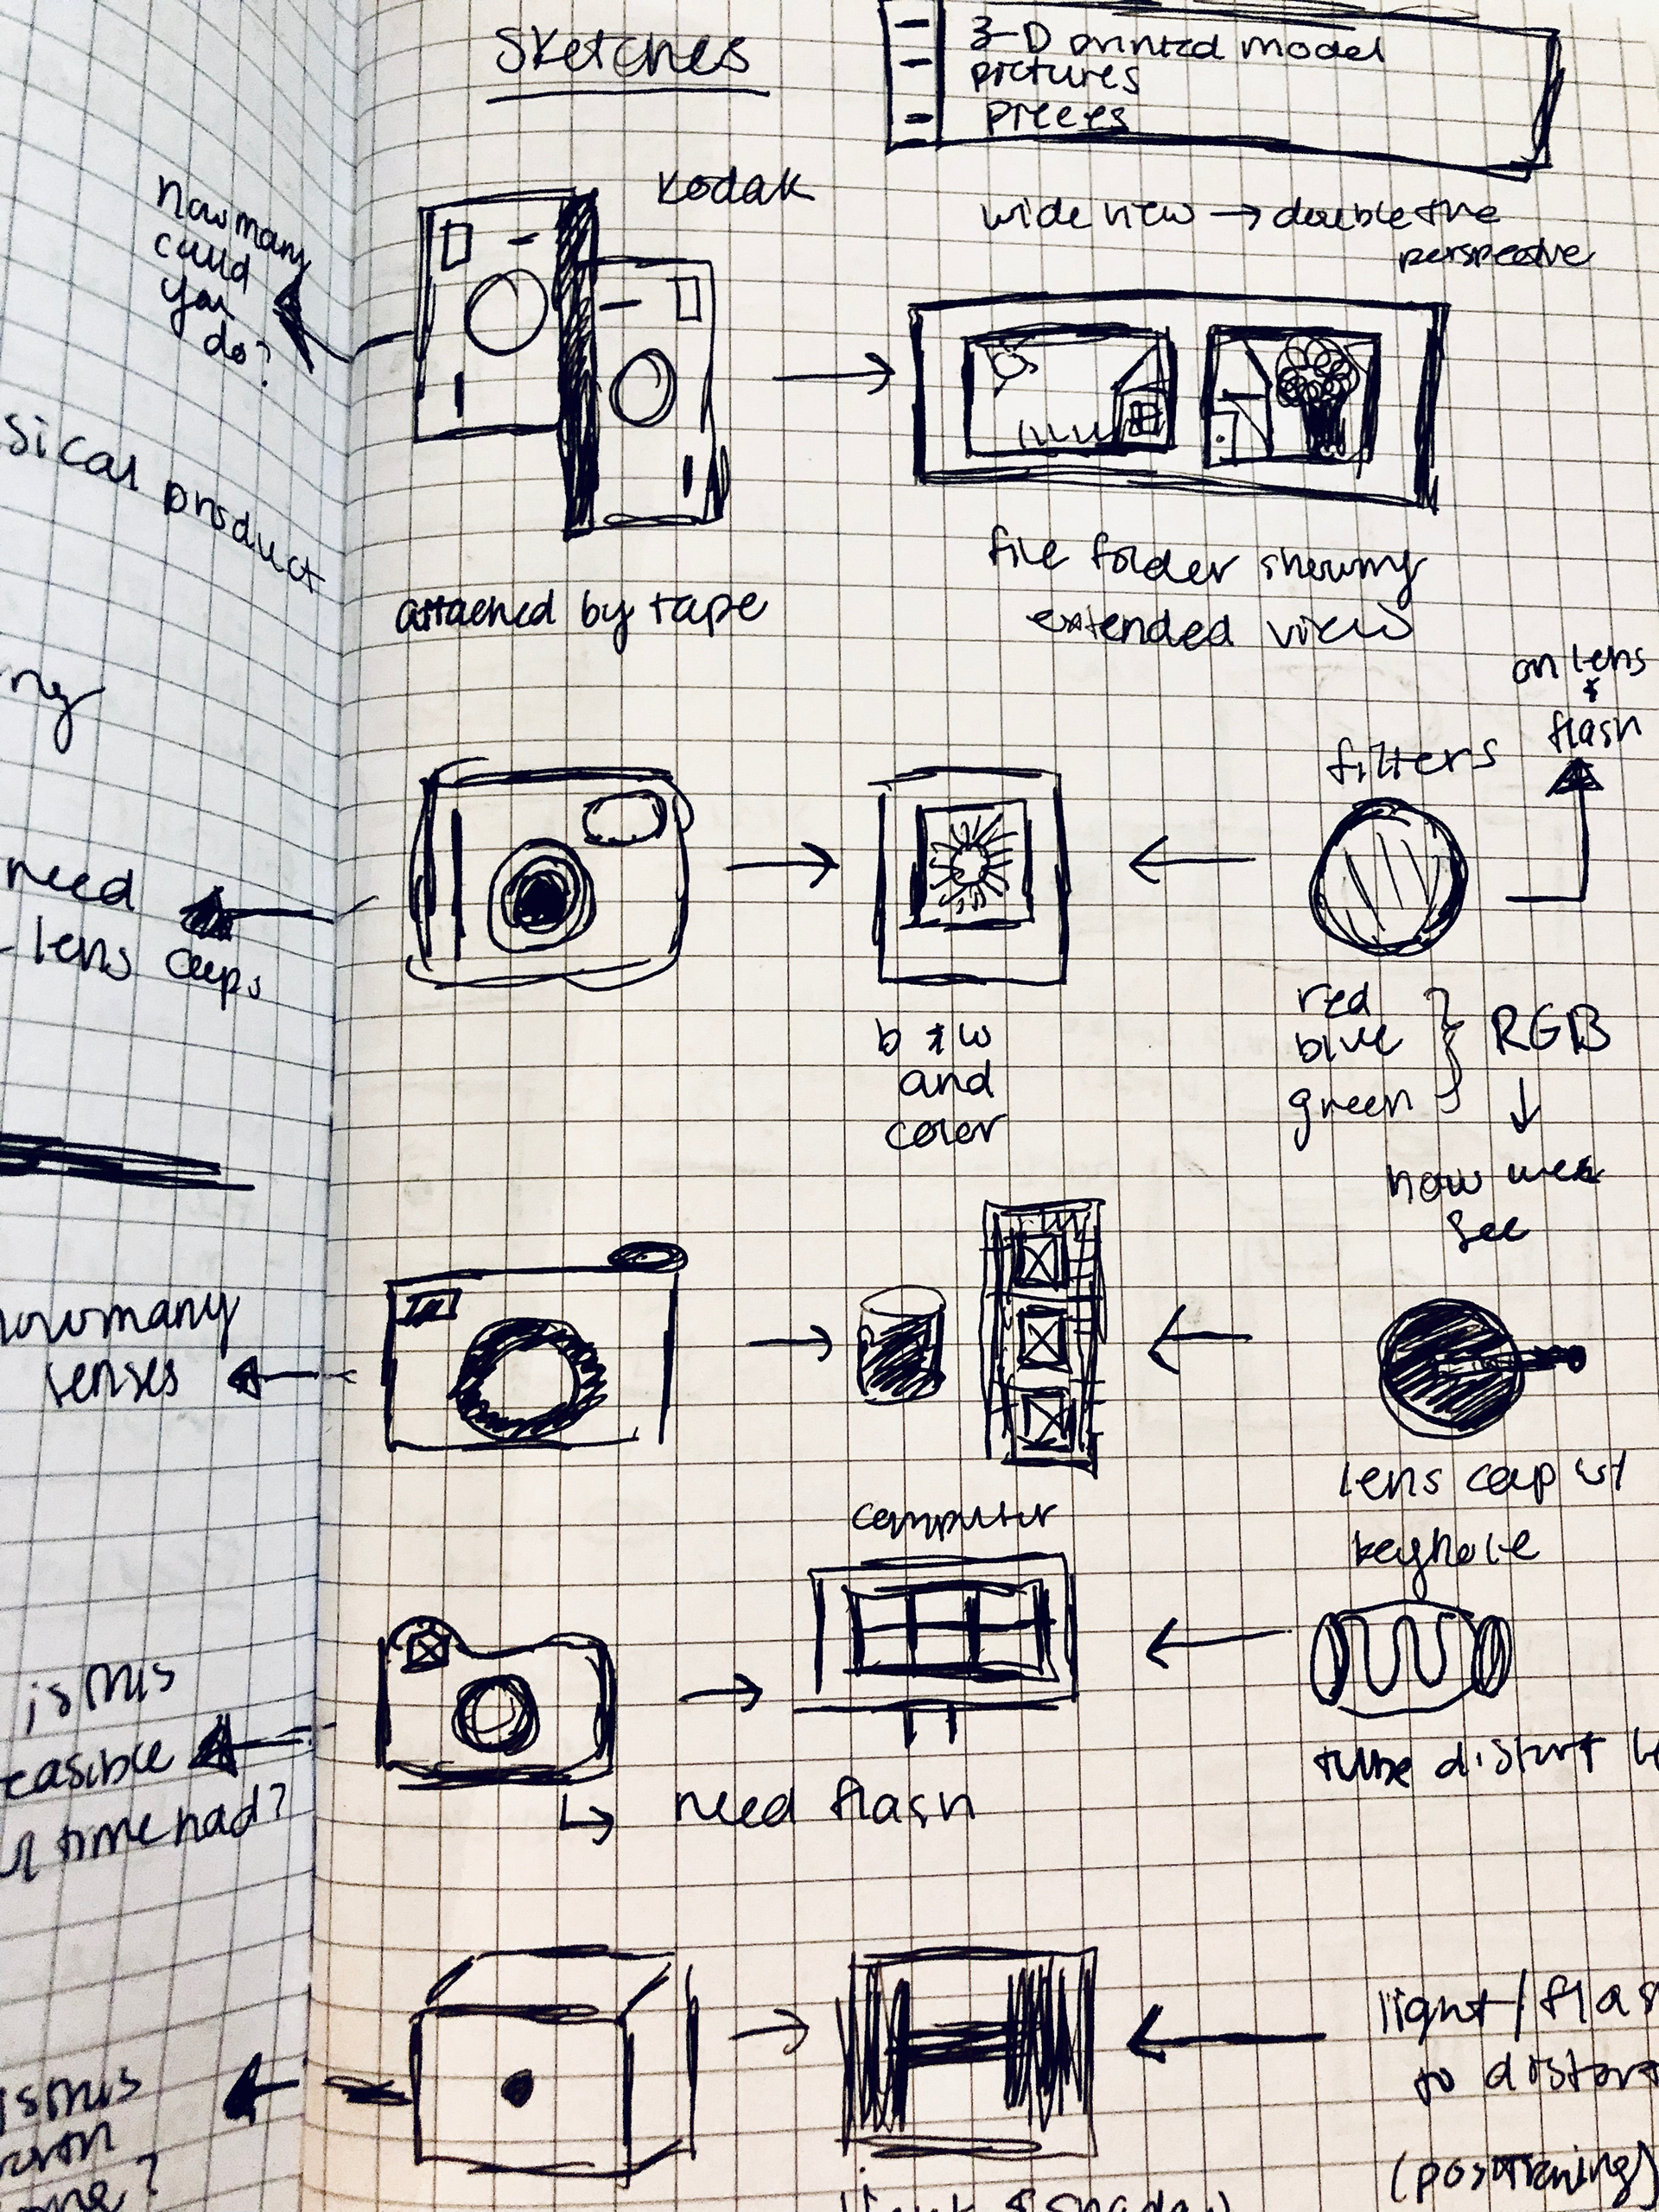 Sketches
3-D printed model
pictures
pieces
Kodak
how many
could
you
do?
wide view → double the
perspective
sical product
attached by tape
file folder showing
extended view
on lens
&
flash
ng
filters
need
lens caps
b & w
and
color
red
blue
green
RGB
how we
see
how many
lenses
lens cap w/
keyhole
computer
is this
easible
time had?
need flash
tube distort
light/flas
to distort
(positioning)
is this